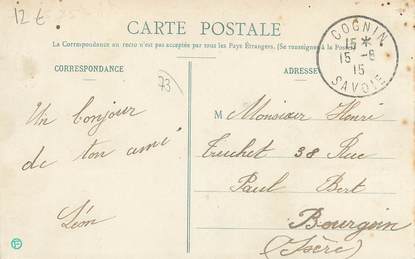 12 €
CARTE POSTALE
La Correspondance au recto n'est pas acceptée par tous les Pays Étrangers. (Se renseigner à la Poste)
CORRESPONDANCE
ADRESSE
COGNIN
15 *
15 - 8
15
SAVOIE
73
Un bonjour
de ton ami
Léon
M Monsieur Henri
Truchet 38 Rue
Paul Bert
Bourgoin
(Isère)